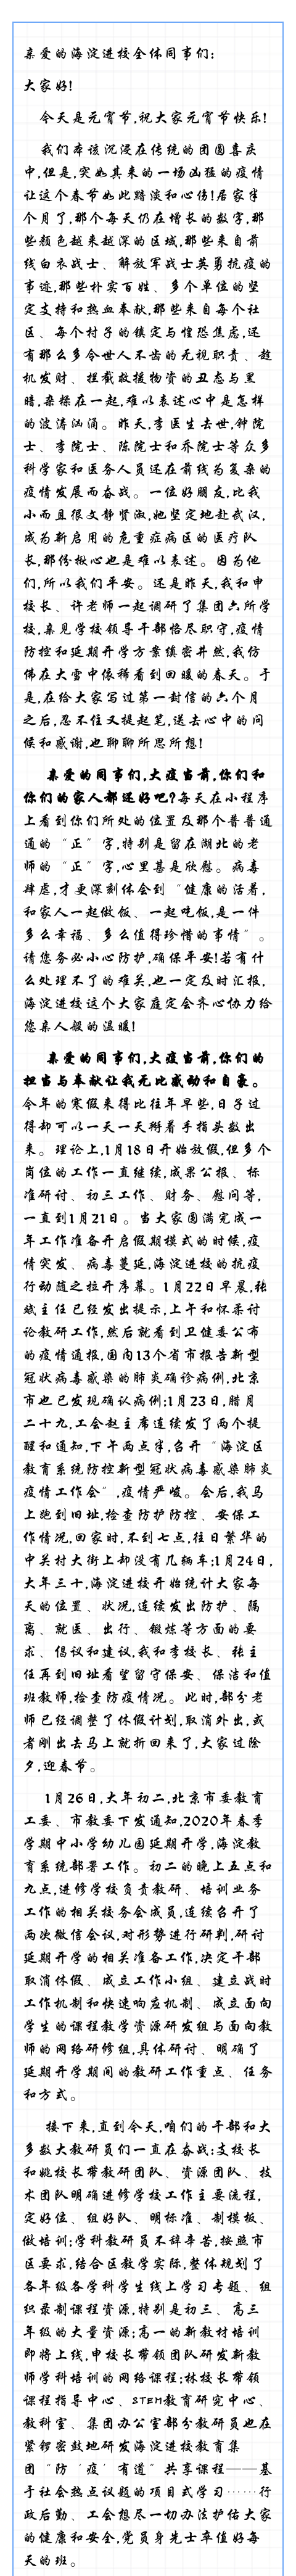 亲爱的海淀进校全体同事们:
大家好!
今天是元宵节,祝大家元宵节快乐!
我们本该沉浸在传统的团圆喜庆
中,但是,突如其来的一场凶猛的疫情
让这个春节如此黯淡和心伤!居家半
个月了,那个每天仍在增长的数字,那
些颜色越来越深的区域,那些来自前
线白衣战士、解放军战士英勇抗疫的
事迹,那些朴实百姓、多个单位的坚
定支持和热血奉献,那些来自每个社
区、每个村子的镇定与惶恐焦虑,还
有那么多令世人不齿的无视职责、趁
机发财、拦截救援物资的丑态与黑
暗,杂糅在一起,难以表述心中是怎样
的波涛汹涌。昨天,李医生去世,钟院
士、李院士、陈院士和乔院士等众多
科学家和医务人员还在前线为复杂的
疫情发展而奋战。一位好朋友,比我
小而且很文静贤淑,她坚定地赴武汉,
成为新启用的危重症病区的医疗队
长,那份揪心也是难以表述。因为他
们,所以我们平安。还是昨天,我和申
校长、许老师一起调研了集团六所学
校,亲见学校领导干部恪尽职守,疫情
防控和延期开学方案缜密井然,我仿
佛在大雪中依稀看到回暖的春天。于
是,在给大家写过第一封信的六个月
之后,忍不住又提起笔,送去心中的问
候和感谢,也聊聊所思所想!
亲爱的同事们,大疫当前,你们和
你们的家人都还好吧?每天在小程序
上看到你们所处的位置及那个普普通
通的“正”字,特别是留在湖北的老
师的“正”字,心里甚是欣慰。病毒
肆虐,才更深刻体会到“健康的活着,
和家人一起做饭、一起吃饭,是一件
多么幸福、多么值得珍惜的事情”。
请您务必小心防护,确保平安!若有什
么处理不了的难关,也一定及时汇报,
海淀进校这个大家庭定会齐心协力给
您亲人般的温暖!
亲爱的同事们,大疫当前,你们的
担当与奉献让我无比感动和自豪。
今年的寒假来得比往年早些,日子过
得却可以一天一天掰着手指头数出
来。理论上,1月18日开始放假,但多个
岗位的工作一直继续,成果公报、标
准研讨、初三工作、财务、慰问等,
一直到1月21日。当大家圆满完成一
年工作准备开启假期模式的时候,疫
情突发、病毒蔓延,海淀进校的抗疫
行动随之拉开序幕。1月22日早晨,张
斌主任已经发出提示,上午和怀柔讨
论教研工作,然后就看到卫健委公布
的疫情通报,国内13个省市报告新型
冠状病毒感染的肺炎确诊病例,北京
市也已发现确认病例;1月23日,腊月
二十九,工会赵主席连续发了两个提
醒和通知,下午两点半,召开“海淀区
教育系统防控新型冠状病毒感染肺炎
疫情工作会”,疫情严峻。会后,我马
上跑到旧址,检查防护防控、安保工
作情况,回家时,不到七点,往日繁华的
中关村大街上却没有几辆车;1月24日,
大年三十,海淀进校开始统计大家每
天的位置、状况,连续发出防护、隔
离、就医、出行、锻炼等方面的要
求、倡议和建议,我和李校长、张主
任再到旧址看望留守保安、保洁和值
班教师,检查防疫情况。此时,部分老
师已经调整了休假计划,取消外出,或
者刚出去马上就折回来了,大家过除
夕,迎春节。
1月26日,大年初二,北京市委教育
工委、市教委下发通知,2020年春季
学期中小学幼儿园延期开学,海淀教
育系统部署工作。初二的晚上五点和
九点,进修学校负责教研、培训业务
工作的相关校务会成员,连续召开了
两次微信会议,对形势进行研判,研讨
延期开学的相关准备工作,决定干部
取消休假、成立工作小组、建立战时
工作机制和快速响应机制、成立面向
学生的课程教学资源研发组与面向教
师的网络研修组,具体研讨、明确了
延期开学期间的教研工作重点、任务
和方式。
接下来,直到今天,咱们的干部和大
多数大教研员们一直在奋战;支校长
和姚校长带教研团队、资源团队、技
术团队明确进修学校工作主要流程,
定好位、组好队、明标准、制模板、
做培训;学科教研员不辞辛苦,按照市
区要求,结合区教学实际,整体规划了
各年级各学科学生线上学习专题、组
织录制课程资源,特别是初三、高三
年级的大量资源;高一的新教材培训
即将上线,申校长带领团队研发新教
师学科培训的网络课程;林校长带领
课程指导中心、STEM教育研究中心、
教科室、集团办公室部分教研员也在
紧锣密鼓地研发海淀进校教育集
团“防‘疫’有道”共享课程——基
于社会热点议题的项目式学习……行
政后勤、工会想尽一切办法护佑大家
的健康和安全,党员身先士卒值好每
天的班。